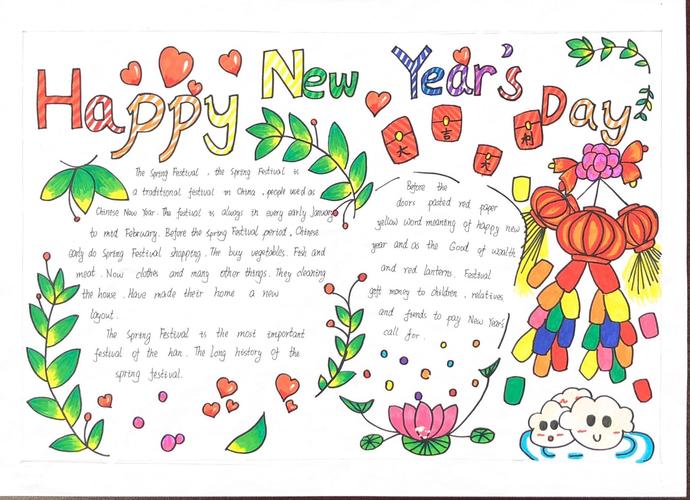 Happy New Year's Day
大 吉 大 利
The Spring Festival , the Spring Festival is
a traditional festival in China , people used as
Chinese New Year. The festival is always in every early January
to mid February. Before the Spring Festival period , Chinese
early do Spring Festival shopping. The buy vegetables. Fish and
meat . Now clothes and many other things. They cleaning
the house . Have made their home a new
layout.
The Spring Festival is the most important
festival of the han . The long history of the
spring festival.
Before the
doors pasted red paper
yellow word meaning of happy new
year and as the Good of wealth
and red lanterns. Festival
gift money to children , relatives
and funds to pay New Year's
call for .